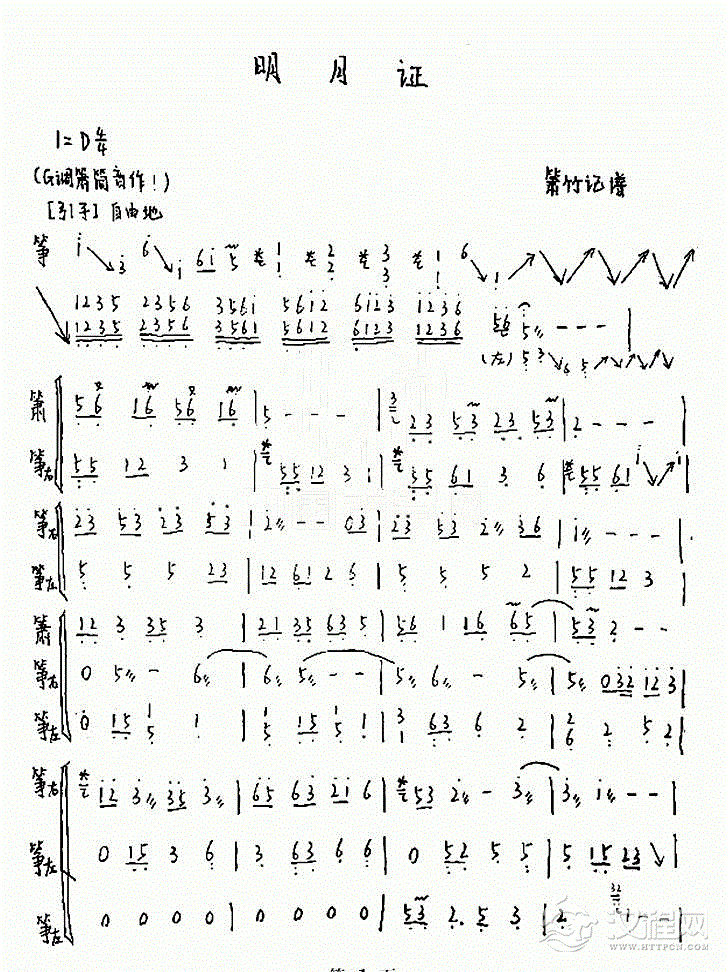 明月证
1=D 4/4
(G调箫筒音作1)
箫竹记谱
[引子] 自由地
筝 i 3 6 i 6i 5 1 1 2 2 3 3 1 1 6 1
1235 2356 356i 56i2 6i23 i236
1235 2356 3561 5612 6123 1236 5 - - - |
(左) 5 3 6 5
箫 56 16 56 16 | 5 - - - | 23 53 23 53 | 2 - - - |
筝右 55 12 3 1 | 55 12 3 1 | 55 61 3 6 | 55 61 i
筝右 23 53 23 53 | 2 - - 03 | 23 53 2 36 | i - - - |
筝左 5 5 5 23 | 12 61 2 6 | 5 5 5 2 | 55 12 3 |
箫 12 3 35 3 | 21 35 635 | 56 1 16 65 | 53 2 - - |
筝右 0 5 - 6 | 6 5 - - | 5 6 - 5 | 5 032 123 |
筝左 0 15 1 5 1 | 1 5 15 1 5 1 | 3 1 63 6 2 | 2 6 2 5 2 |
筝右 12 3 35 3 | 65 63 21 6 | 53 2 - 3 | 3 i - - |
筝左 0 15 3 6 | 3 63 6 6 | 0 52 5 5 | 5 15 23 |
筝左 0 0 0 0 | 0 0 0 0 | 53 2. 5 3 | 2 32 1 - - |
汉程网
WWW.HTTPCN.COM